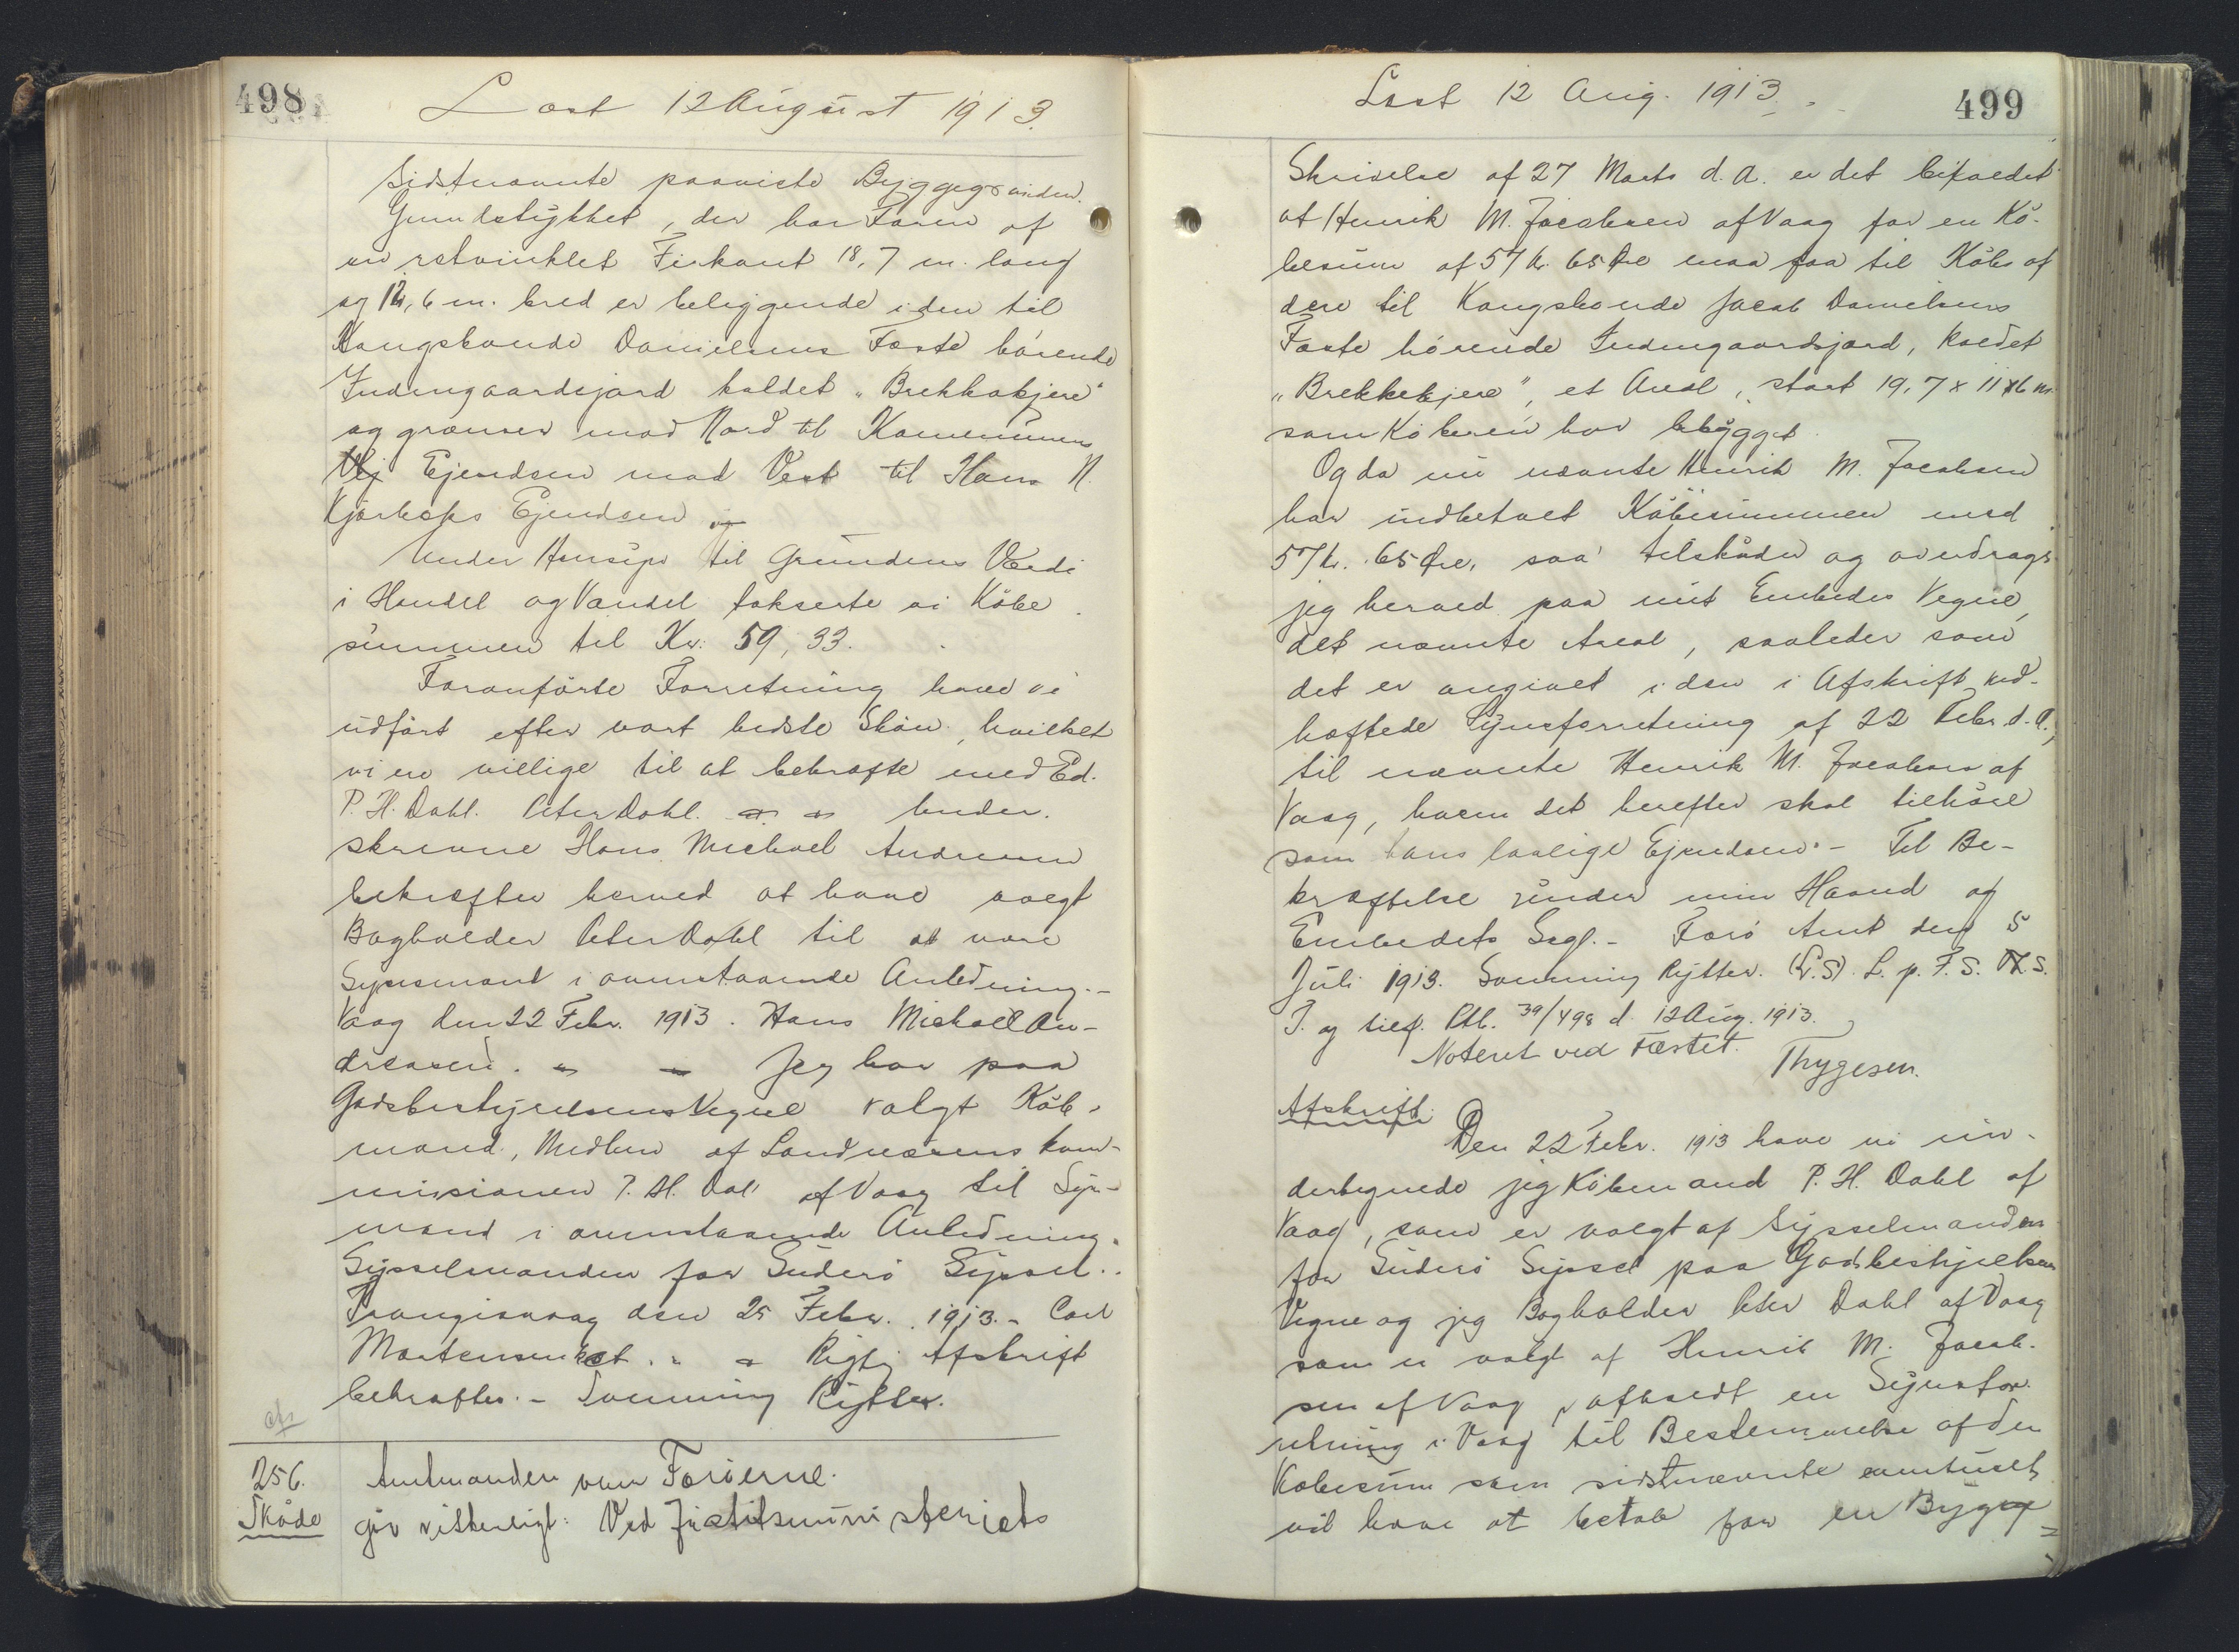 498
Læst 12 August 1913.
sidstnævnte paaviste Byggegrunden.
Grundstykket, der har Form af
en retvinklet Firkant 18,7 m. lang
og 12,6 m. bred er beliggende i den til
Kongsbonde Danielsens Fæste hørende
Indengaardsjord kaldet "Brekkakjere"
og grænser mod Nord til Kommunens
Vej Ejendsen mod Vest til Hans N.
Kjørbøks Ejendsen
Under Hensyn til Grundens Værdi
i Handel og Vandel takserte vi Købe
summen til Kr. 59,33.
Foranførte Forretning have vi
udført efter vort bedste Skøn, hvilket
vi ere villige til at bekræfte med Ed.
P. H. Dahl. Peter Dahl. " " Under.
skrevne Hans Michael Andreasen
bekræfter herved at have valgt
Bogholder Peter Dahl til at være
Synsmand i ovenstaaende Anledning.-
Vaag den 22 Febr. 1913. Hans Michael An-
dreasen. " " Jeg har paa
Godsbestyrelsens Vegne valgt Køb-
mand, Medlem af Landvæsens kom-
missionen P. H. Dal af Vaag til Syn-
mand i ovenstaaende Anledning.
Sysselmanden for Suderø Syssel.
Trangisvaag den 25 Febr. 1913.- Carl
Mortensen kst. " " Rigtig Afskrift
bekræftes.- Svenning Rytter.
256.
Skøde
Amtmanden over Færøerne.
gør vitterligt: Ved Justitsministeriets
499
Læst 12 Aug. 1913.
Skrivelse af 27 Marts d.A. er det bifaldet
at Henrik M. Jacobsen af Vaag for en Kø-
besum af 57 Kr. 65 Øre maa faa til Købs af
den til Kongsbonde Jacob Danielsens
Fæste hørende Indengaardsjord, kaldet
"Brekkekjere", et Areal, stort 19,7 x 11,6 m.
som Køberen har bebygget.
Og da nu nævnte Henrik M. Jacobsen
har indbetalt Købesummen med
57 Kr. 65 Øre, saa tilskøder og overdrager
jeg herved paa mit Embedes Vegne
det nævnte Areal, saaledes som
det er angivet i den i Afskrift ved-
hæftede Synsforretning af 22 Febr. d.A.,
til nævnte Henrik M. Jacobsen af
Vaag, hvem det herefter skal tilhøre
som hans lovlige Ejendom.- Til Be-
kræftelse under min Haand og
Embedets Segl.- Færø Amt den 5
Juli 1913. Svenning Rytter. (L.S). L. p. F. S. V. S.
J. og tilf. Ptb. 39/498 d. 12 Aug. 1913.
Noteret ved Fæstet.
Thygesen.
Afskrift.
Den 22 Febr. 1913 have vi un-
dertegnede jeg Købmand P. H. Dahl af
Vaag, som er valgt af Sysselmanden
for Suderø Syssel paa Godsbestyrelsens
Vegne og jeg Bogholder Peter Dahl af Vaag
som er valgt af Henrik M. Jacob-
sen af Vaag, afholdt en Synsfor-
retning i Vaag til Bestemmelse af den
Købesum som sidstnævnte eventuelt
vil have at betale for en Bygge=